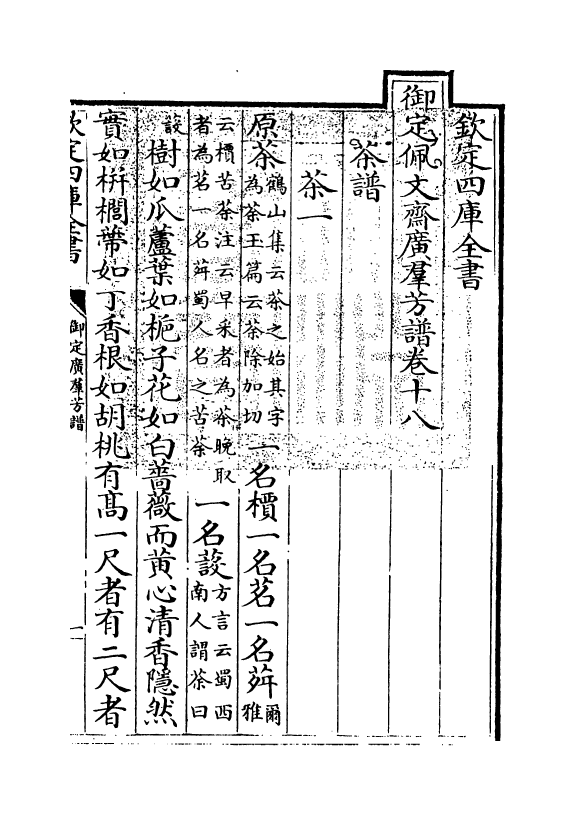 欽定四庫全書
御定佩文齋廣羣芳譜卷十八
茶譜
茶一
原茶鶴山集云茶之始其字
為荼玉篇云荼除加切一名檟一名茗一名荈爾
雅
云檟苦荼注云早采者為茶晚取
者為茗一名荈蜀人名之苦荼一名蔎方言云蜀西
南人謂茶曰
蔎樹如瓜蘆葉如梔子花如白薔薇而黄心清香隱然
實如栟櫚蔕如丁香根如胡桃有髙一尺者有二尺者
欽定四庫全書
御定廣羣芳譜
一